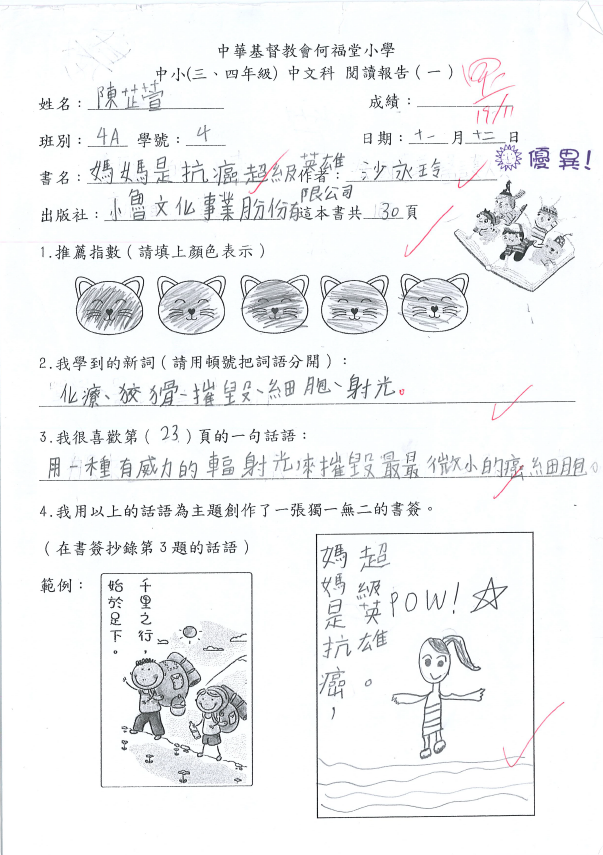 中華基督教會何福堂小學
中小(三、四年級) 中文科 閱讀報告(一)
姓名：陳芷萱 成績：
19/11
班別：4A 學號：4 日期：十一月十二日
優異!
書名：媽媽是抗癌超級英雄 作者：沙永玲
出版社：小魯文化事業股份有限公司 這本書共 30 頁
1.推薦指數(請填上顏色表示)
2.我學到的新詞(請用頓號把詞語分開)：
化療、狡猾、摧毀、細胞、射光。
3.我很喜歡第(23)頁的一句話語：
用一種有威力的輻射光來摧毀最最微小的癌細胞。
4.我用以上的話語為主題創作了一張獨一無二的書簽。
(在書簽抄錄第3題的話語)
範例：
千里之行，
始於足下。
媽媽是抗癌，
超級英雄。
POW!